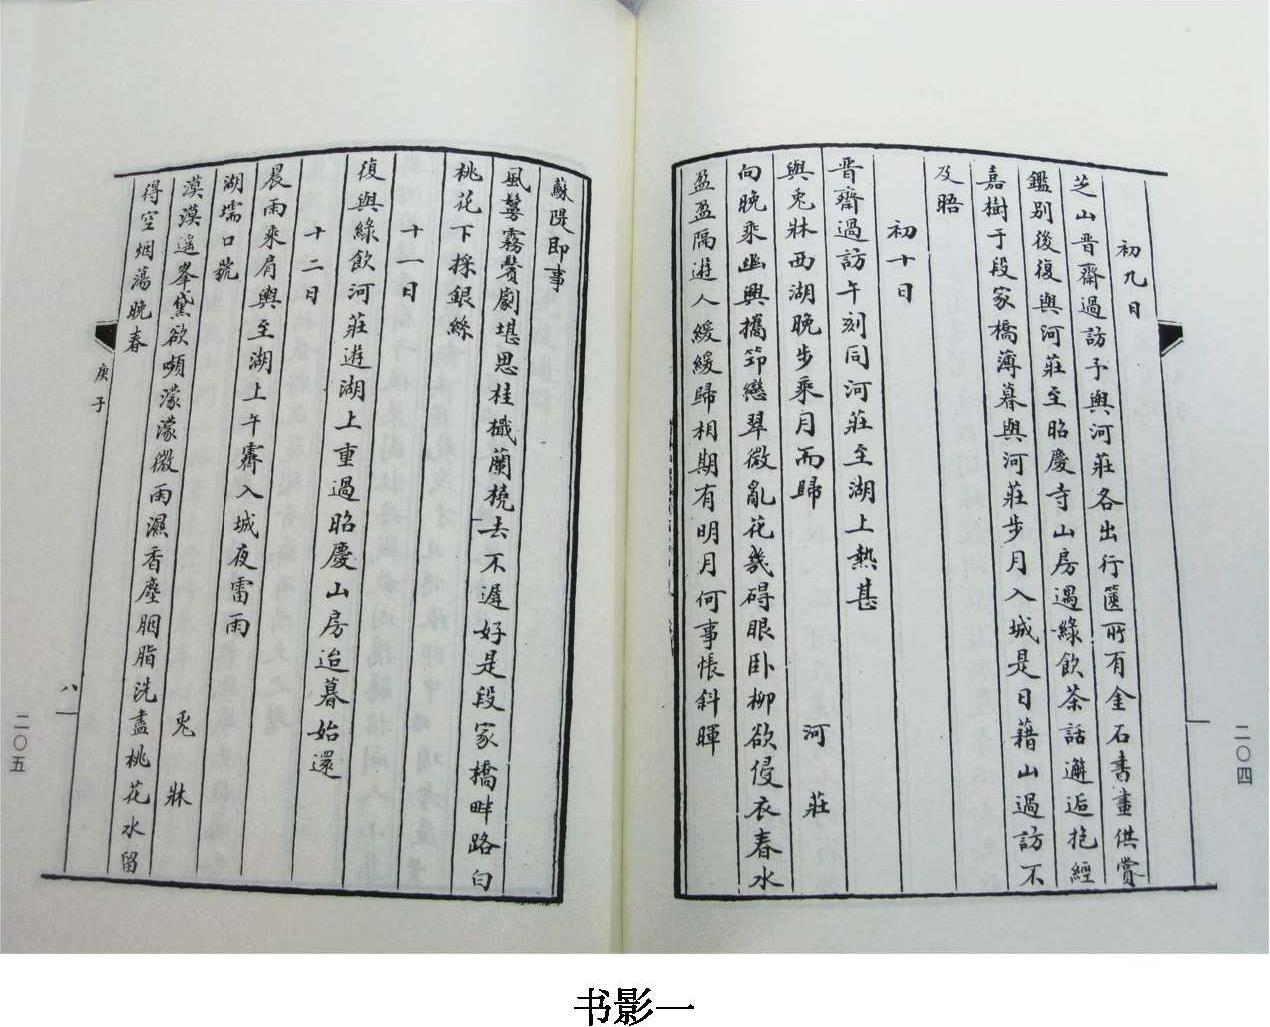 初九日
芝山晋齋過訪予與河莊各出行篋所有金石書畫供賞
鑑别後復與河莊至昭慶寺山房遇綠飲茶話邂逅抱經
嘉樹于段家橋薄暮與河莊步月入城是日藉山過訪不
及晤
初十日
晋齋過訪午刻同河莊至湖上熱甚
與兎牀西湖晚步乘月而歸 河莊
向晚乘幽興攜筇戀翠微亂花幾碍眼卧柳欲侵衣春水
盈盈隔遊人緩緩歸相期有明月何事悵斜暉
二〇四
蘇隄即事
風鬟霧鬢劇堪思桂檝蘭橈去不遲好是段家橋畔路白
桃花下採銀絲
十一日
復與綠飲河莊遊湖上重過昭慶山房迨暮始還
十二日
晨雨乘肩輿至湖上午霽入城夜雷雨
湖壖口號 兎牀
漠漠遙峯黛欲嚬濛濛微雨濕香塵胭脂洗盡桃花水留
得空烟蕩晚春
庚子
八
二〇五
书影一